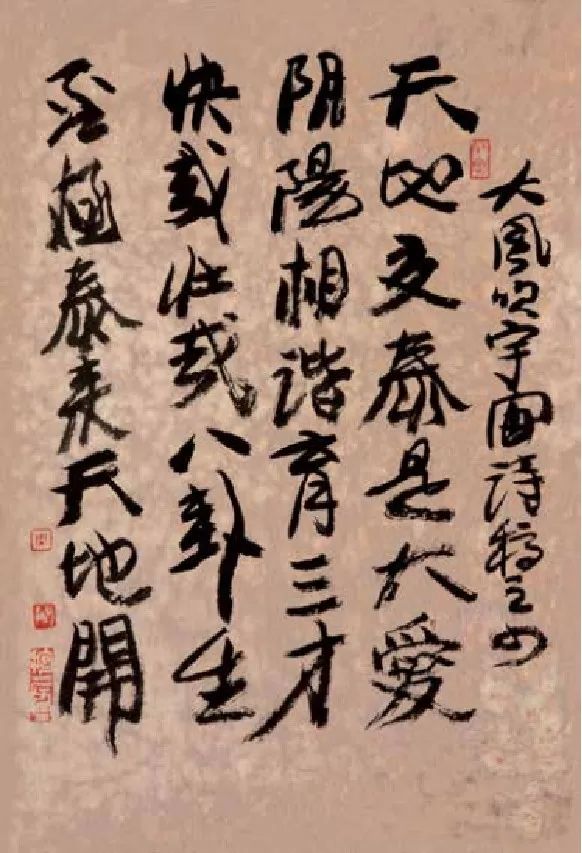 大風吹宇宙詩稿之四
天地交泰是大愛
阴陽相谐育三才
快哉壮哉八卦生
否極泰来天地開